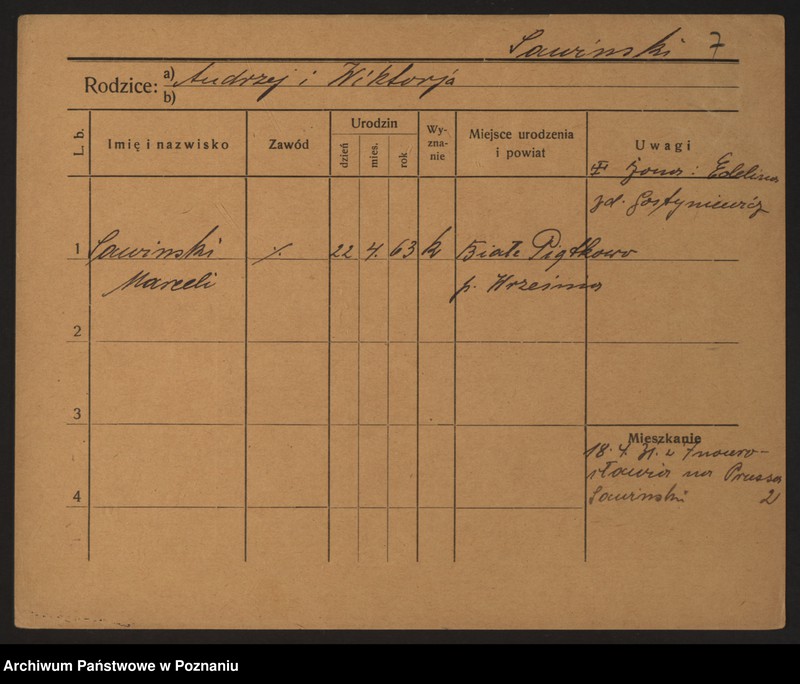 Sawinski 7
Rodzice: a) Andrzej i Wiktorja
b)
L. b.
Imię i nazwisko
Zawód
Urodzin
dzień
mies.
rok
Wy-
zna-
nie
Miejsce urodzenia
i powiat
Uwagi
żona: Edelina
zd. Gostyniewicz
1 Sawinski ٪ 22 4. 63 k Białe Piątkowo
Marceli p. Września
2
3
4
Mieszkanie
18. 4. 31. z Inowro-
sławia na Prusa
Sawinski 2
Archiwum Państwowe w Poznaniu